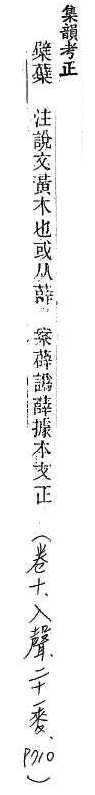 集韻考正
檗蘗 注說文黃木也或从薜 案薜譌薛據本文正 (卷十、入聲、二十一麥、P710)